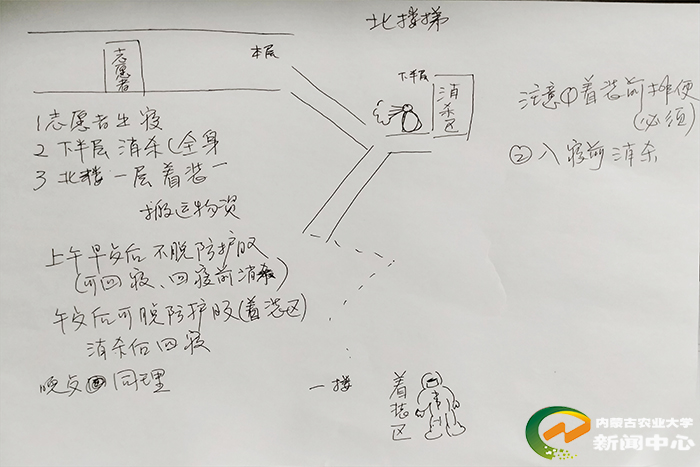 北楼梯
志愿者
本层
下半层
消杀区
注意①着装前排便
(必须)
②入寝前消杀
1志愿者出寝
2下半层消杀(全身
3北楼一层着装
搬运物资
上午早点后不脱防护服
(可回寝、回寝前消杀)
午点后可脱防护服(着装区)
消杀后回寝
晚点 同理
一楼
着装区
内蒙古农业大学
新闻中心